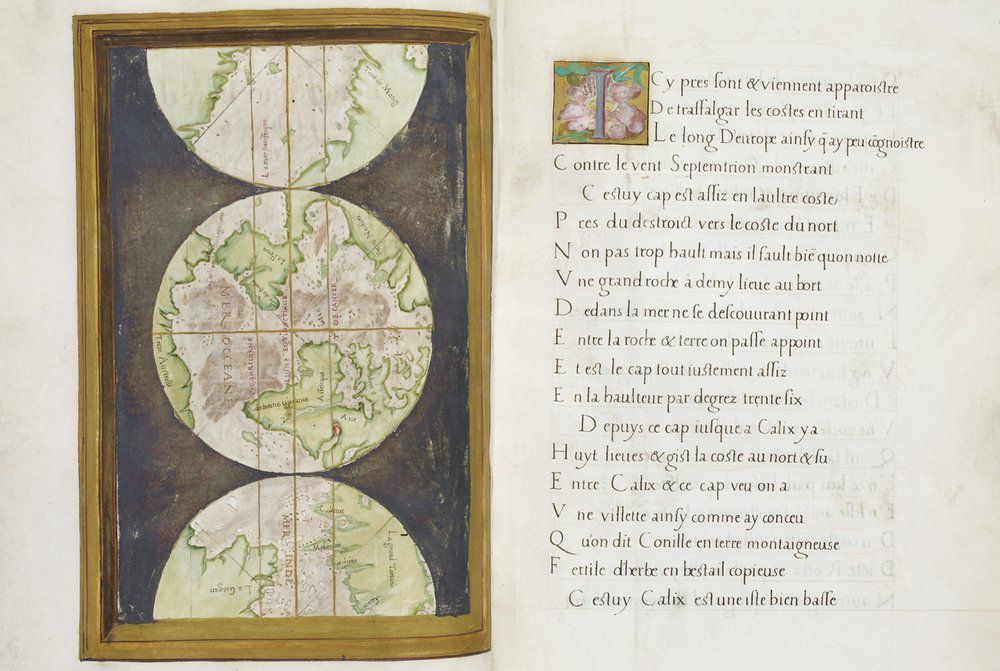 La mer pacifique
MER OCCEANE
CAPRICORNNE
LIGNE EQVINOCTIALE
T DE CANCER
Terre Australle
de bonne esperance
Affrique
Asie
MER DINDE
Icy pres sont & viennent apparoistre
De traffalgar les costes en tirant
Le long D'europe ainsy q̃ ay peu cõgnoistre
Contre le vent Septemtrion monstrant
Cestuy cap est assiz en laultre coste
Pres du destroict vers le coste du nort
Non pas trop hault mais il fault biẽ quon notte
Vne grand roche a demy lieue au bort
Dedans la mer ne se descouurant point
Entre la roche & terre on passe appoint
Et est le cap tout iustement assiz
En la haulteur par degrez trente six
Depuys ce cap iusque a Calix ya
Huyt lieues & gist la coste au nort & su
Entre Calix & ce cap veu on a
Vne villette ainsy comme ay conceu
Qu'on dit Conille en terre montaigneuse
Fertile d'herbe en bestail copieuse
Cestuy Calix est une isle bien basse